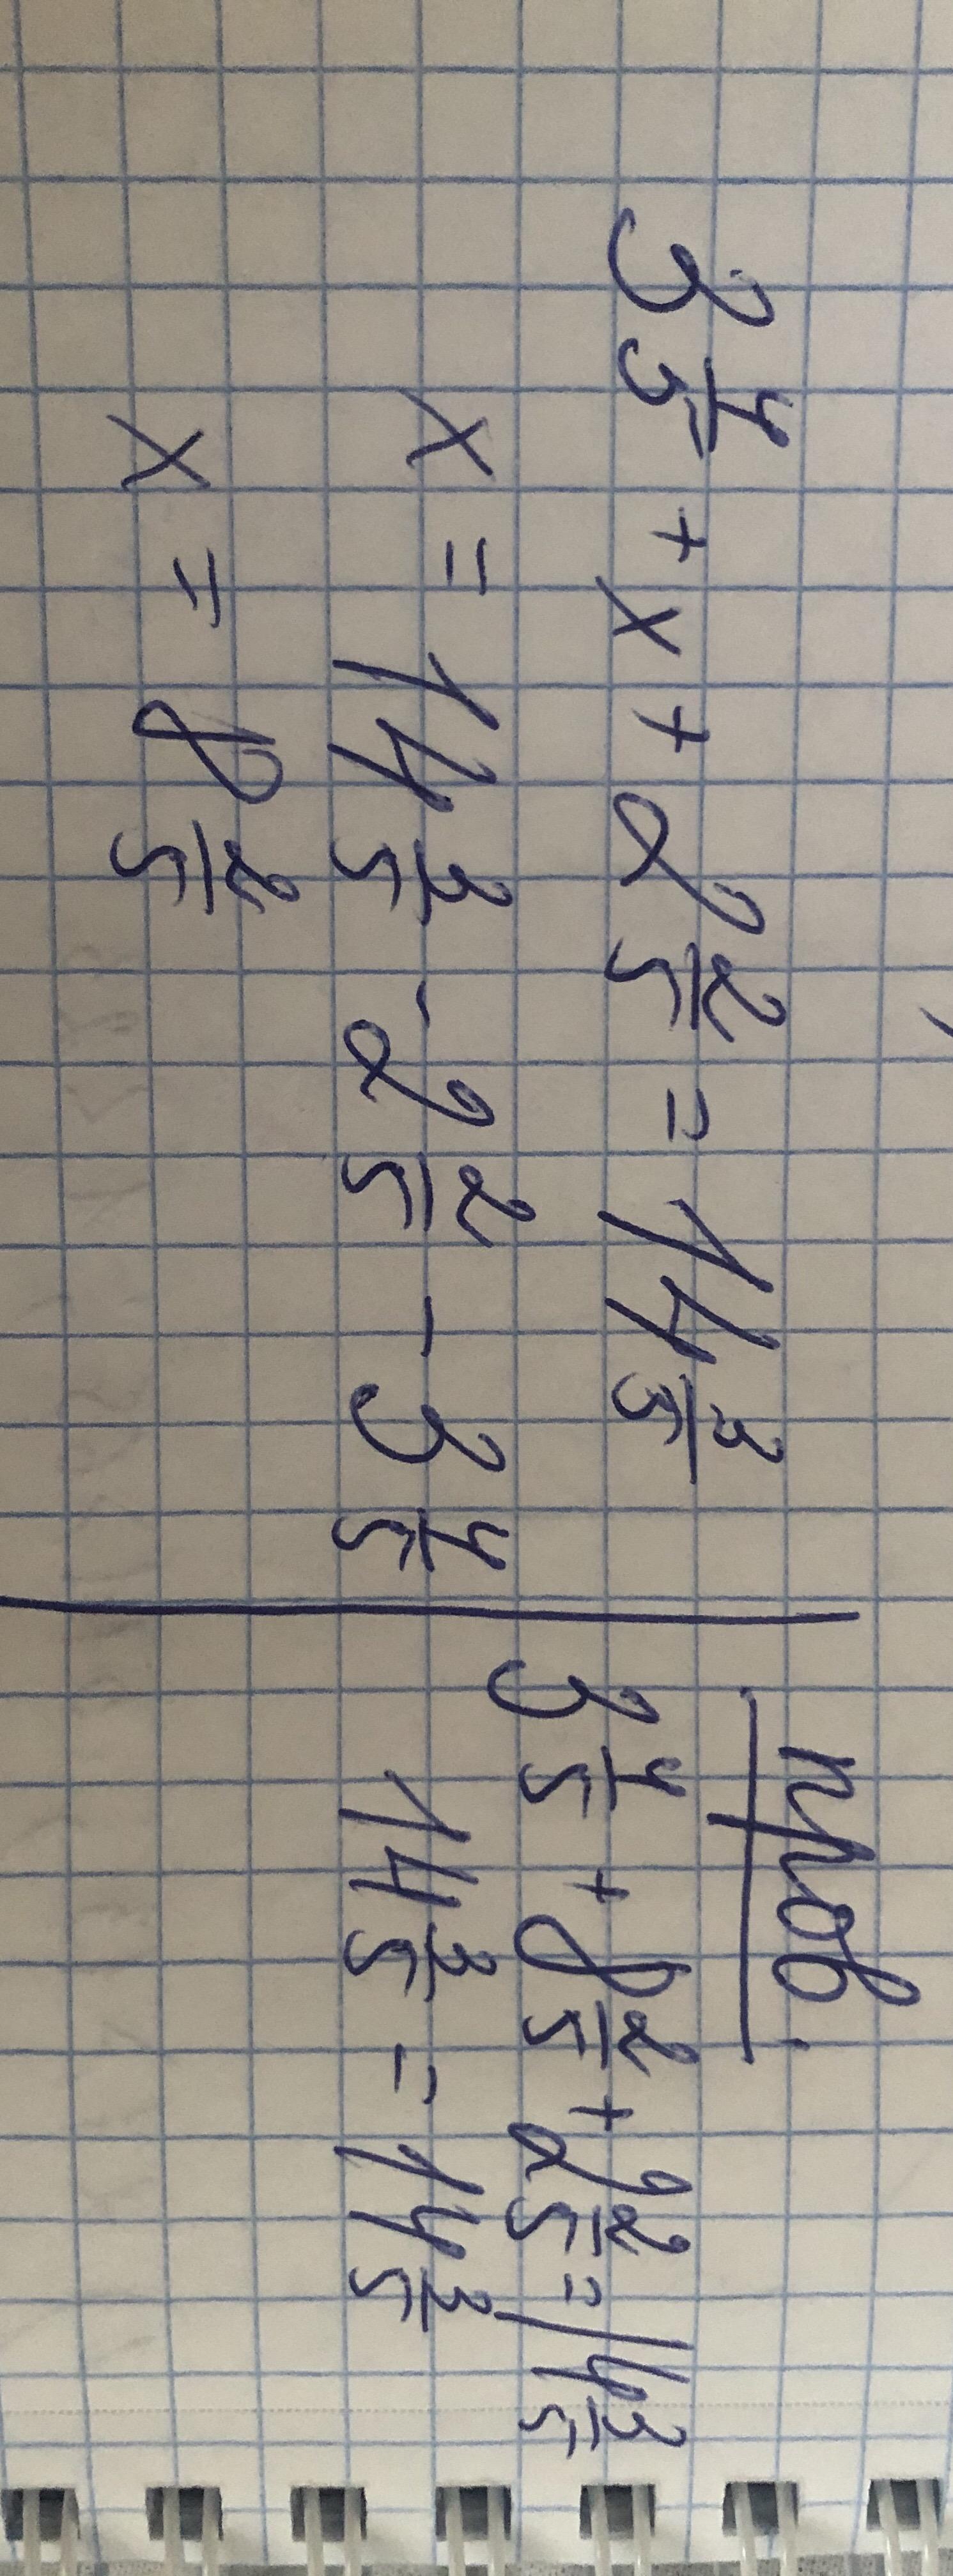 3 4/5 + x + 2 2/5 = 14 3/5
x = 14 3/5 - 2 2/5 - 3 4/5
x = 8 2/5
пров.
3 4/5 + 8 2/5 + 2 2/5 = 14 3/5
14 3/5 = 14 3/5